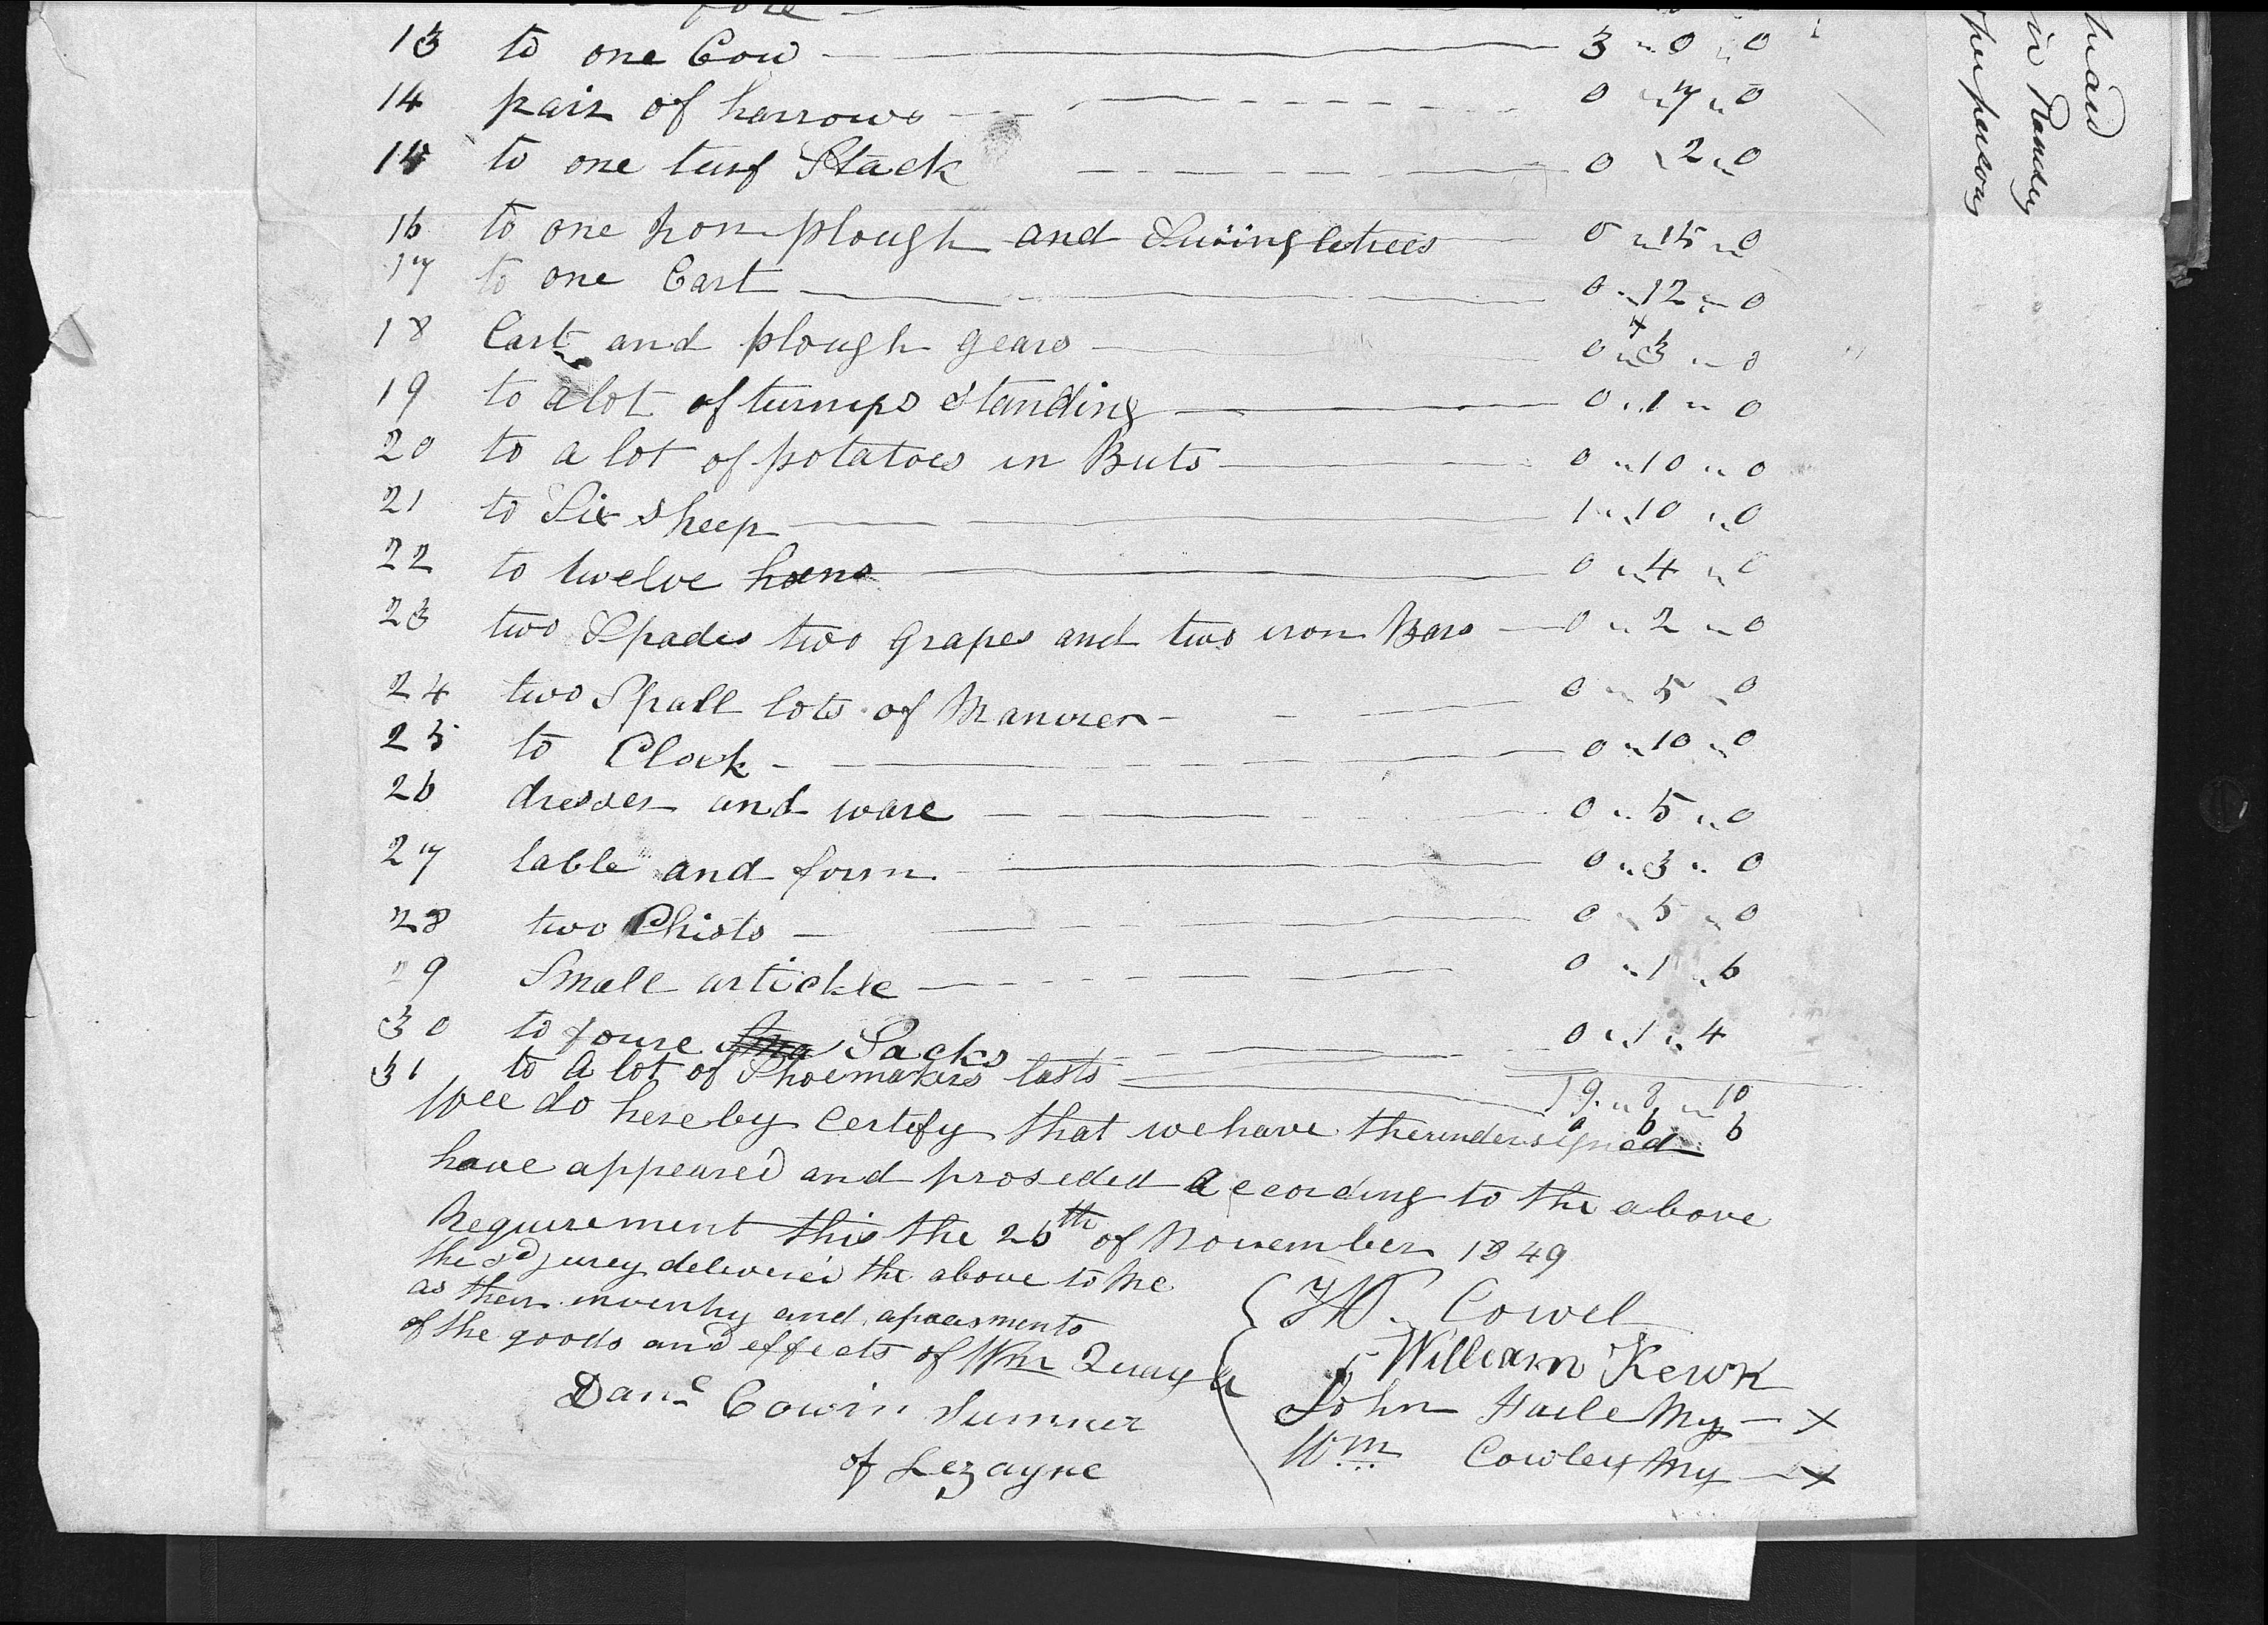 13 to one Cow 3 " 0 " 0
14 pair of harrows 0 " 7 " 0
15 to one turf Stack 0 " 2 " 0
16 to one Iron plough and Swingletrees 0 " 15 " 0
17 to one Cart 0 " 12 " 0
18 Cart and plough gears 0 " 3 " 0
19 to a lot of turnips Standing 0 " 1 " 0
20 to a lot of potatoes in Buts 0 " 10 " 0
21 to Six Sheep 1 " 10 " 0
22 to twelve hens 0 " 4 " 0
23 two Spades two grapes and two iron Bars 0 " 2 " 0
24 two Small lots of Manuer 0 " 5 " 0
25 to Clock 0 " 10 " 0
26 dresser and ware 0 " 5 " 0
27 table and form 0 " 3 " 0
28 two Chists 0 " 5 " 0
29 Small artickle 0 " 1 " 6
30 to foure Sacks 0 " 1 " 4
31 to a lot of Shoemakers lasts
19 " 8 " 10
0 6 6
Wee do hereby Certefy that we have therundersigned
have appeared and proseded according to the above
Requirement this the 26th of November 1849
the sd jurey delivered the above to me
as their inventry and apraasments
of the goods and effects of Wm Quay
Danl Cowin Sumner
of Lezayre
Cowel
William Kewn
John Faile My X
Wm Cowley My X
in Ramsey